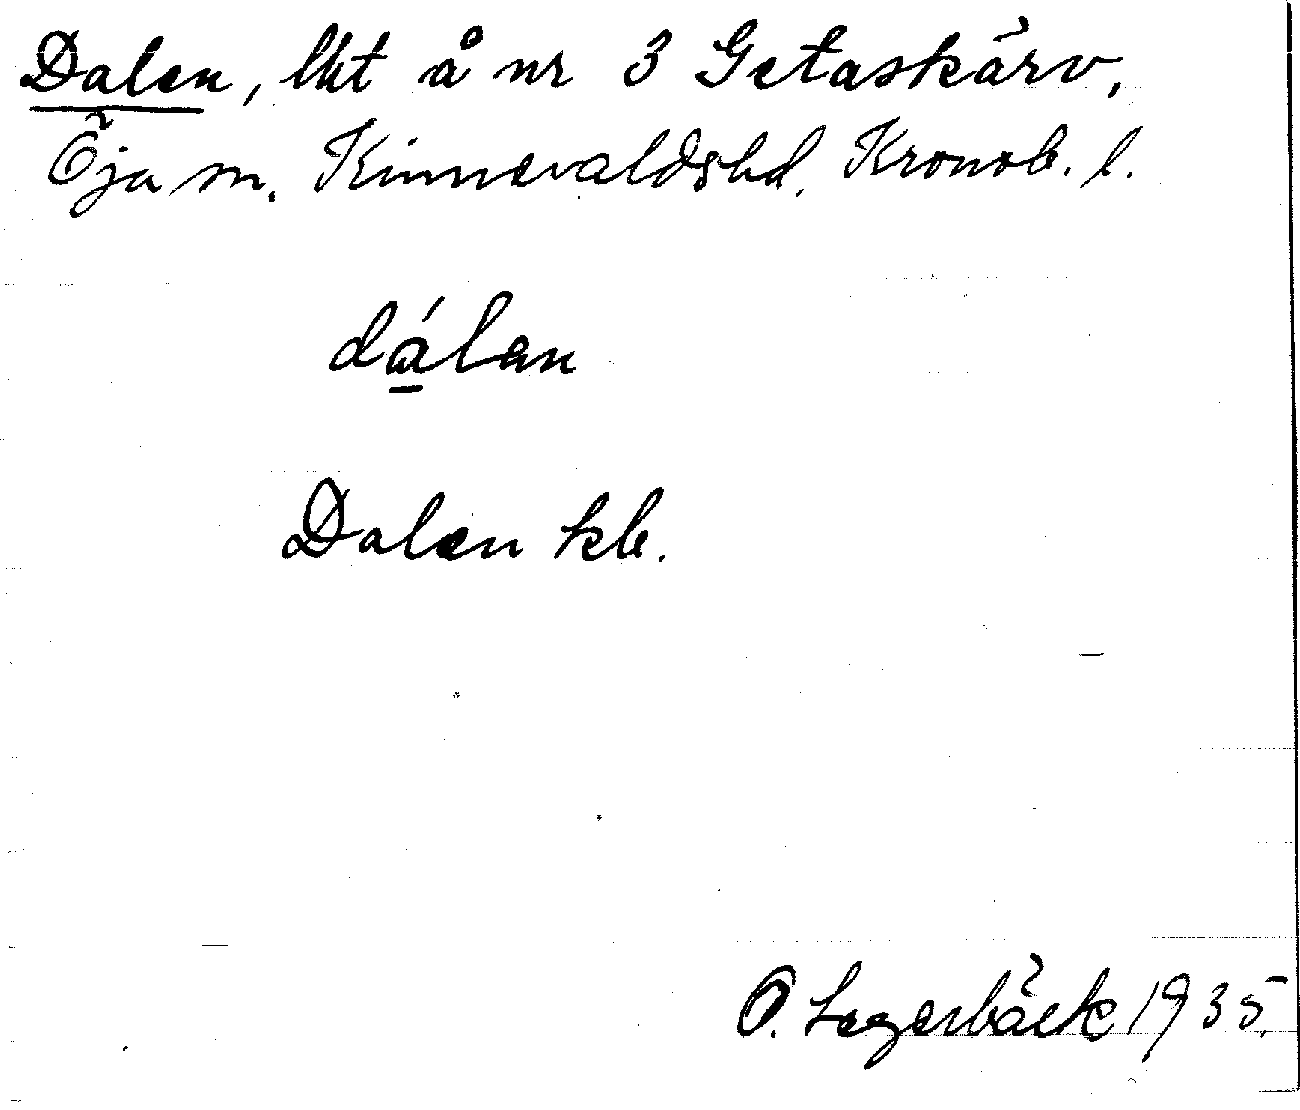 Dalen, lht å nr 3 Getaskärv,
Öja sn. Kinnevaldshd. Kronob. l.
dálan
Dalen kb.
O. Lagerbäck 1935.